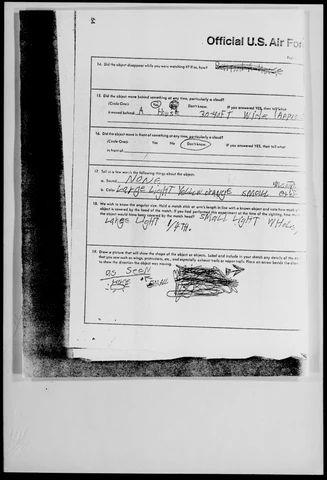 Official U.S. Air For
14. Did the object disappear while you were watching it? If so, how?
15. Did the object move behind something at any time, particularly a cloud?
(Circle One): Don't know. If you answered YES, then tell what
it moved behind: A House 30-40FT While
16. Did the object move in front of something at any time, particularly a cloud?
(Circle One): Yes No Don't know. If you answered YES, then tell what
in front of:
17. Tell in a few words the following things about the object:
a. Sound NONE
b. Color Large Light Yellow orange small
18. We wish to know the angular size. Hold a match stick at arm's length in line with a known object and note how much of the
object is covered by the head of the match. If you had performed this experiment at the time of the sighting, how much of
the object would have been covered by the match head? SMALL LIGHT
LARGE Light
19. Draw a picture that will show the shape of the object or objects. Label and include in your sketch any details of the
that you saw such as wings, protrusions, etc., and especially exhaust trails or vapor trails. Place an arrow beside the
to show the direction the object was moving.
as seen
SMALL